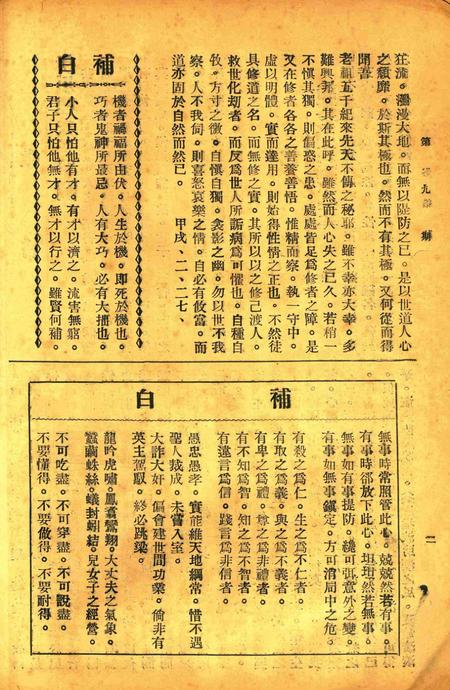 狂流。瀰漫大地。而無以隄防之已。是以世道人心
之頹靡。於斯其極也。然而不有其極。又何從而得
聞吾
老祖五千紀來先天不傳之秘耶。雖不幸亦大幸。多
難興邦。其在此呼。雖然而人心失之已久。若稍一
不愼其獨。則偏惑之患。處處皆足爲修者之障。是
又在修者各各之善養善悟。惟精而察。執一守中。
虛以明體。實而達用。則始得性情之正也。不然徒
具修道之名。而無修之實。其所以以之修己渡人。
救世化劫者。而反爲世人所詬病爲可懼也。自種自
牧。方寸之微。自愼自獨。衾影之幽。勿以世不我
察。人不我伺。則喜怒哀樂之情。自必有攸當。而
道亦固於自然而然已。 甲戌、二、二七、
補白
機者禍福所由伏。人生於機。即死於機也。
巧者鬼神所最忌。人有大巧。必有大拙也。
小人只怕他有才。有才以濟之。流害無窮。
君子只怕他無才。無才以行之。雖賢何補。
補白
無事時常照管此心。兢兢然若有事。
有事時卻放下此心。坦坦然若無事。
無事如有事提防。纔可弭意外之變。
有事如無事鎭定。方可消局中之危。
有殺之爲仁。生之爲不仁者。
有取之爲義。與之爲不義者。
有卑之爲禮。尊之爲非禮者。
有不知爲智。知之爲不智者。
有違言爲信。踐言爲非信者。
愚忠愚孝。實能維天地綱常。惜不遇
聖人裁成。未嘗入室。
大詐大奸。偏會建世間功業。倘非有
英主駕馭。終必跳梁。
龍吟虎嘯。鳳翥鸞翔。大丈夫之氣象。
蠶繭蛛絲。蟻封蚓結。兒女子之經營。
不可吃盡。不可穿盡。不可說盡。
不要懂得。不要做得。不要耐得。
二